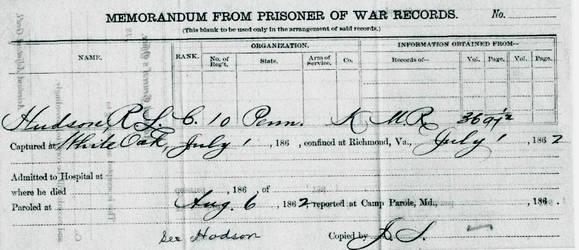 MEMORANDUM FROM PRISONER OF WAR RECORDS. No.
(This blank to be used only in the arrangement of said records.)
NAME. RANK. ORGANIZATION. INFORMATION OBTAINED FROM—
No. of Reg't. State. Arm of Service. Co. Records of— Vol. Page. Vol. Page.
Hudson, R. L. C. 10 Penn. K M R 36
Captured at White Oak, July 1, 186 , confined at Richmond, Va., July 1, 1862
Admitted to Hospital at
where he died , 186 , of
Paroled at Aug. 6, 1862 reported at Camp Parole, Md., , 186
See Hodson Copied by